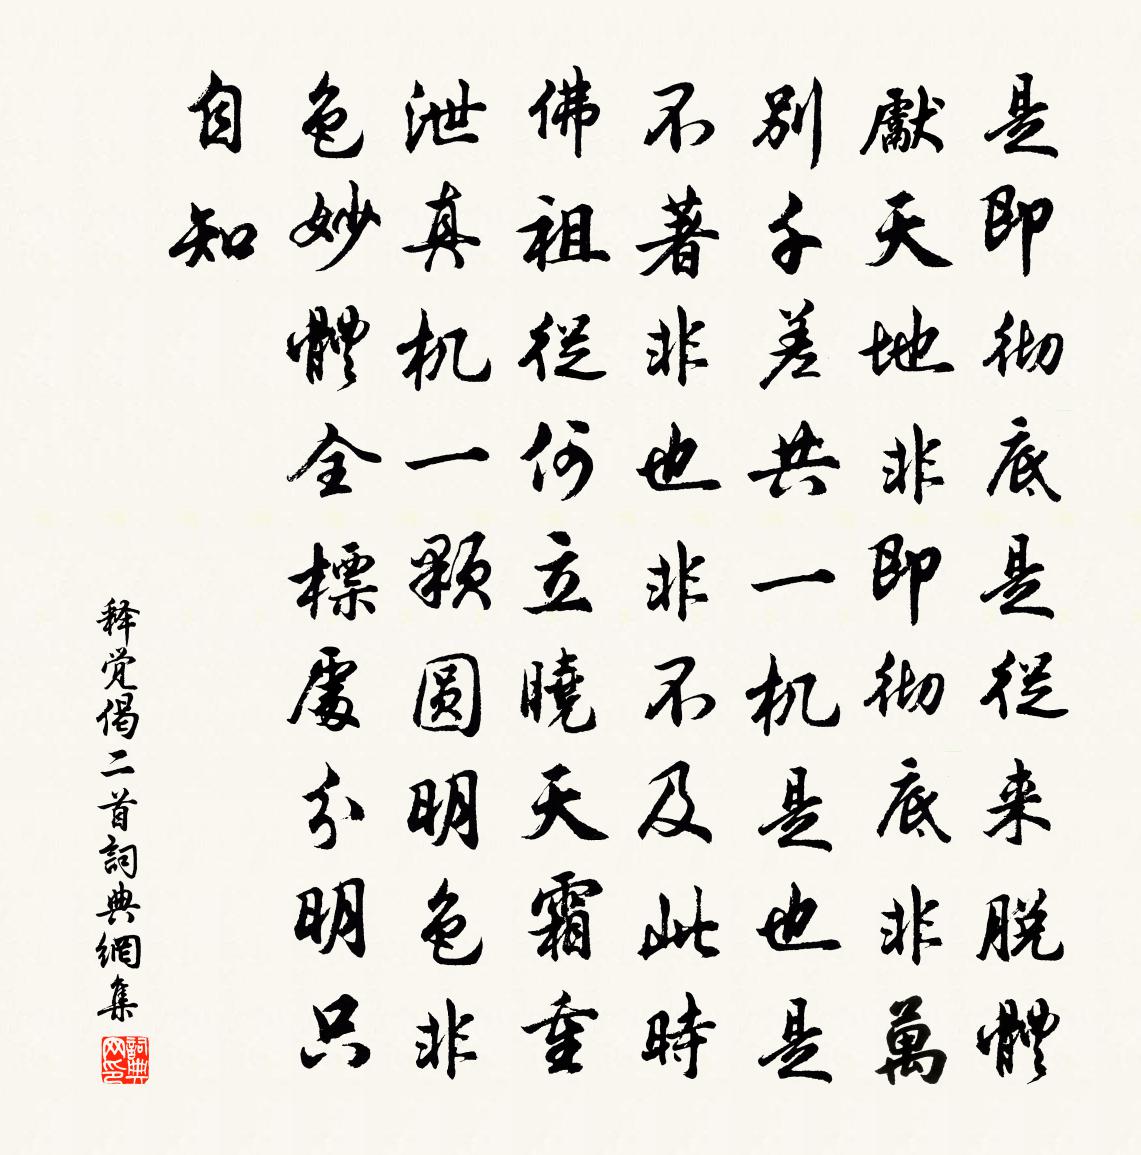 是即彻底是從来脱體
獻天地非即彻底非萬
別千差共一机是也是
不著非也非不及此時
佛祖從何立曉天霜重
泄真机一顆圆明色非
色妙體全標處分明只
自知
释觉偈二首詞典網集
詞典网印